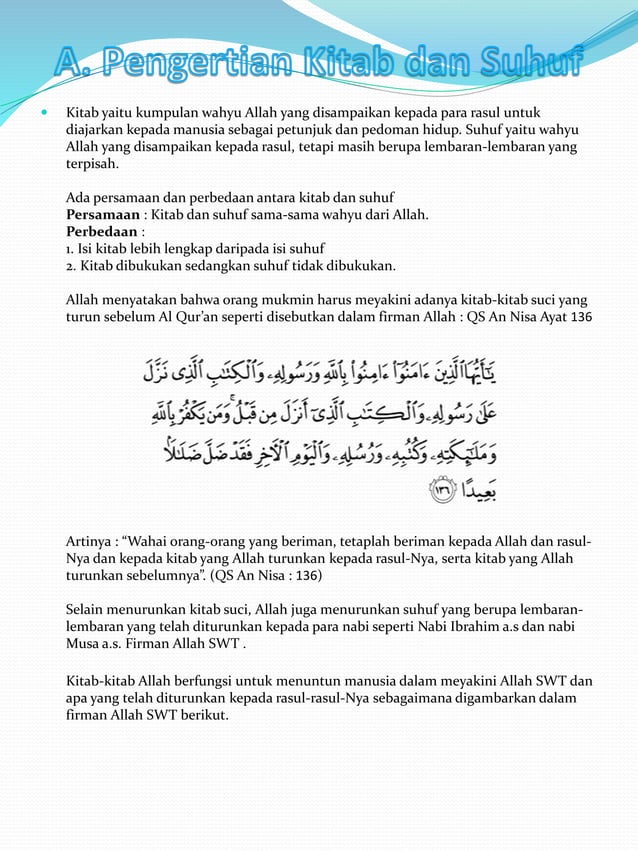 A. Pengertian Kitab dan Suhuf
• Kitab yaitu kumpulan wahyu Allah yang disampaikan kepada para rasul untuk
diajarkan kepada manusia sebagai petunjuk dan pedoman hidup. Suhuf yaitu wahyu
Allah yang disampaikan kepada rasul, tetapi masih berupa lembaran-lembaran yang
terpisah.
Ada persamaan dan perbedaan antara kitab dan suhuf
Persamaan : Kitab dan suhuf sama-sama wahyu dari Allah.
Perbedaan :
1. Isi kitab lebih lengkap daripada isi suhuf
2. Kitab dibukukan sedangkan suhuf tidak dibukukan.
Allah menyatakan bahwa orang mukmin harus meyakini adanya kitab-kitab suci yang
turun sebelum Al Qur’an seperti disebutkan dalam firman Allah : QS An Nisa Ayat 136
يَٰٓأَيُّهَا ٱلَّذِينَ ءَامَنُوٓا۟ ءَامِنُوا۟ بِٱللَّهِ وَرَسُولِهِۦ وَٱلْكِتَٰبِ ٱلَّذِى نَزَّلَ
عَلَىٰ رَسُولِهِۦ وَٱلْكِتَٰبِ ٱلَّذِىٓ أَنزَلَ مِن قَبْلُ ۚ وَمَن يَكْفُرْ بِٱللَّهِ
وَمَلَٰٓئِكَتِهِۦ وَكُتُبِهِۦ وَرُسُلِهِۦ وَٱلْيَوْمِ ٱلْءَاخِرِ فَقَدْ ضَلَّ ضَلَٰلًۢا
بَعِيدًا ١٣٦
Artinya : “Wahai orang-orang yang beriman, tetaplah beriman kepada Allah dan rasul-
Nya dan kepada kitab yang Allah turunkan kepada rasul-Nya, serta kitab yang Allah
turunkan sebelumnya”. (QS An Nisa : 136)
Selain menurunkan kitab suci, Allah juga menurunkan suhuf yang berupa lembaran-
lembaran yang telah diturunkan kepada para nabi seperti Nabi Ibrahim a.s dan nabi
Musa a.s. Firman Allah SWT .
Kitab-kitab Allah berfungsi untuk menuntun manusia dalam meyakini Allah SWT dan
apa yang telah diturunkan kepada rasul-rasul-Nya sebagaimana digambarkan dalam
firman Allah SWT berikut.